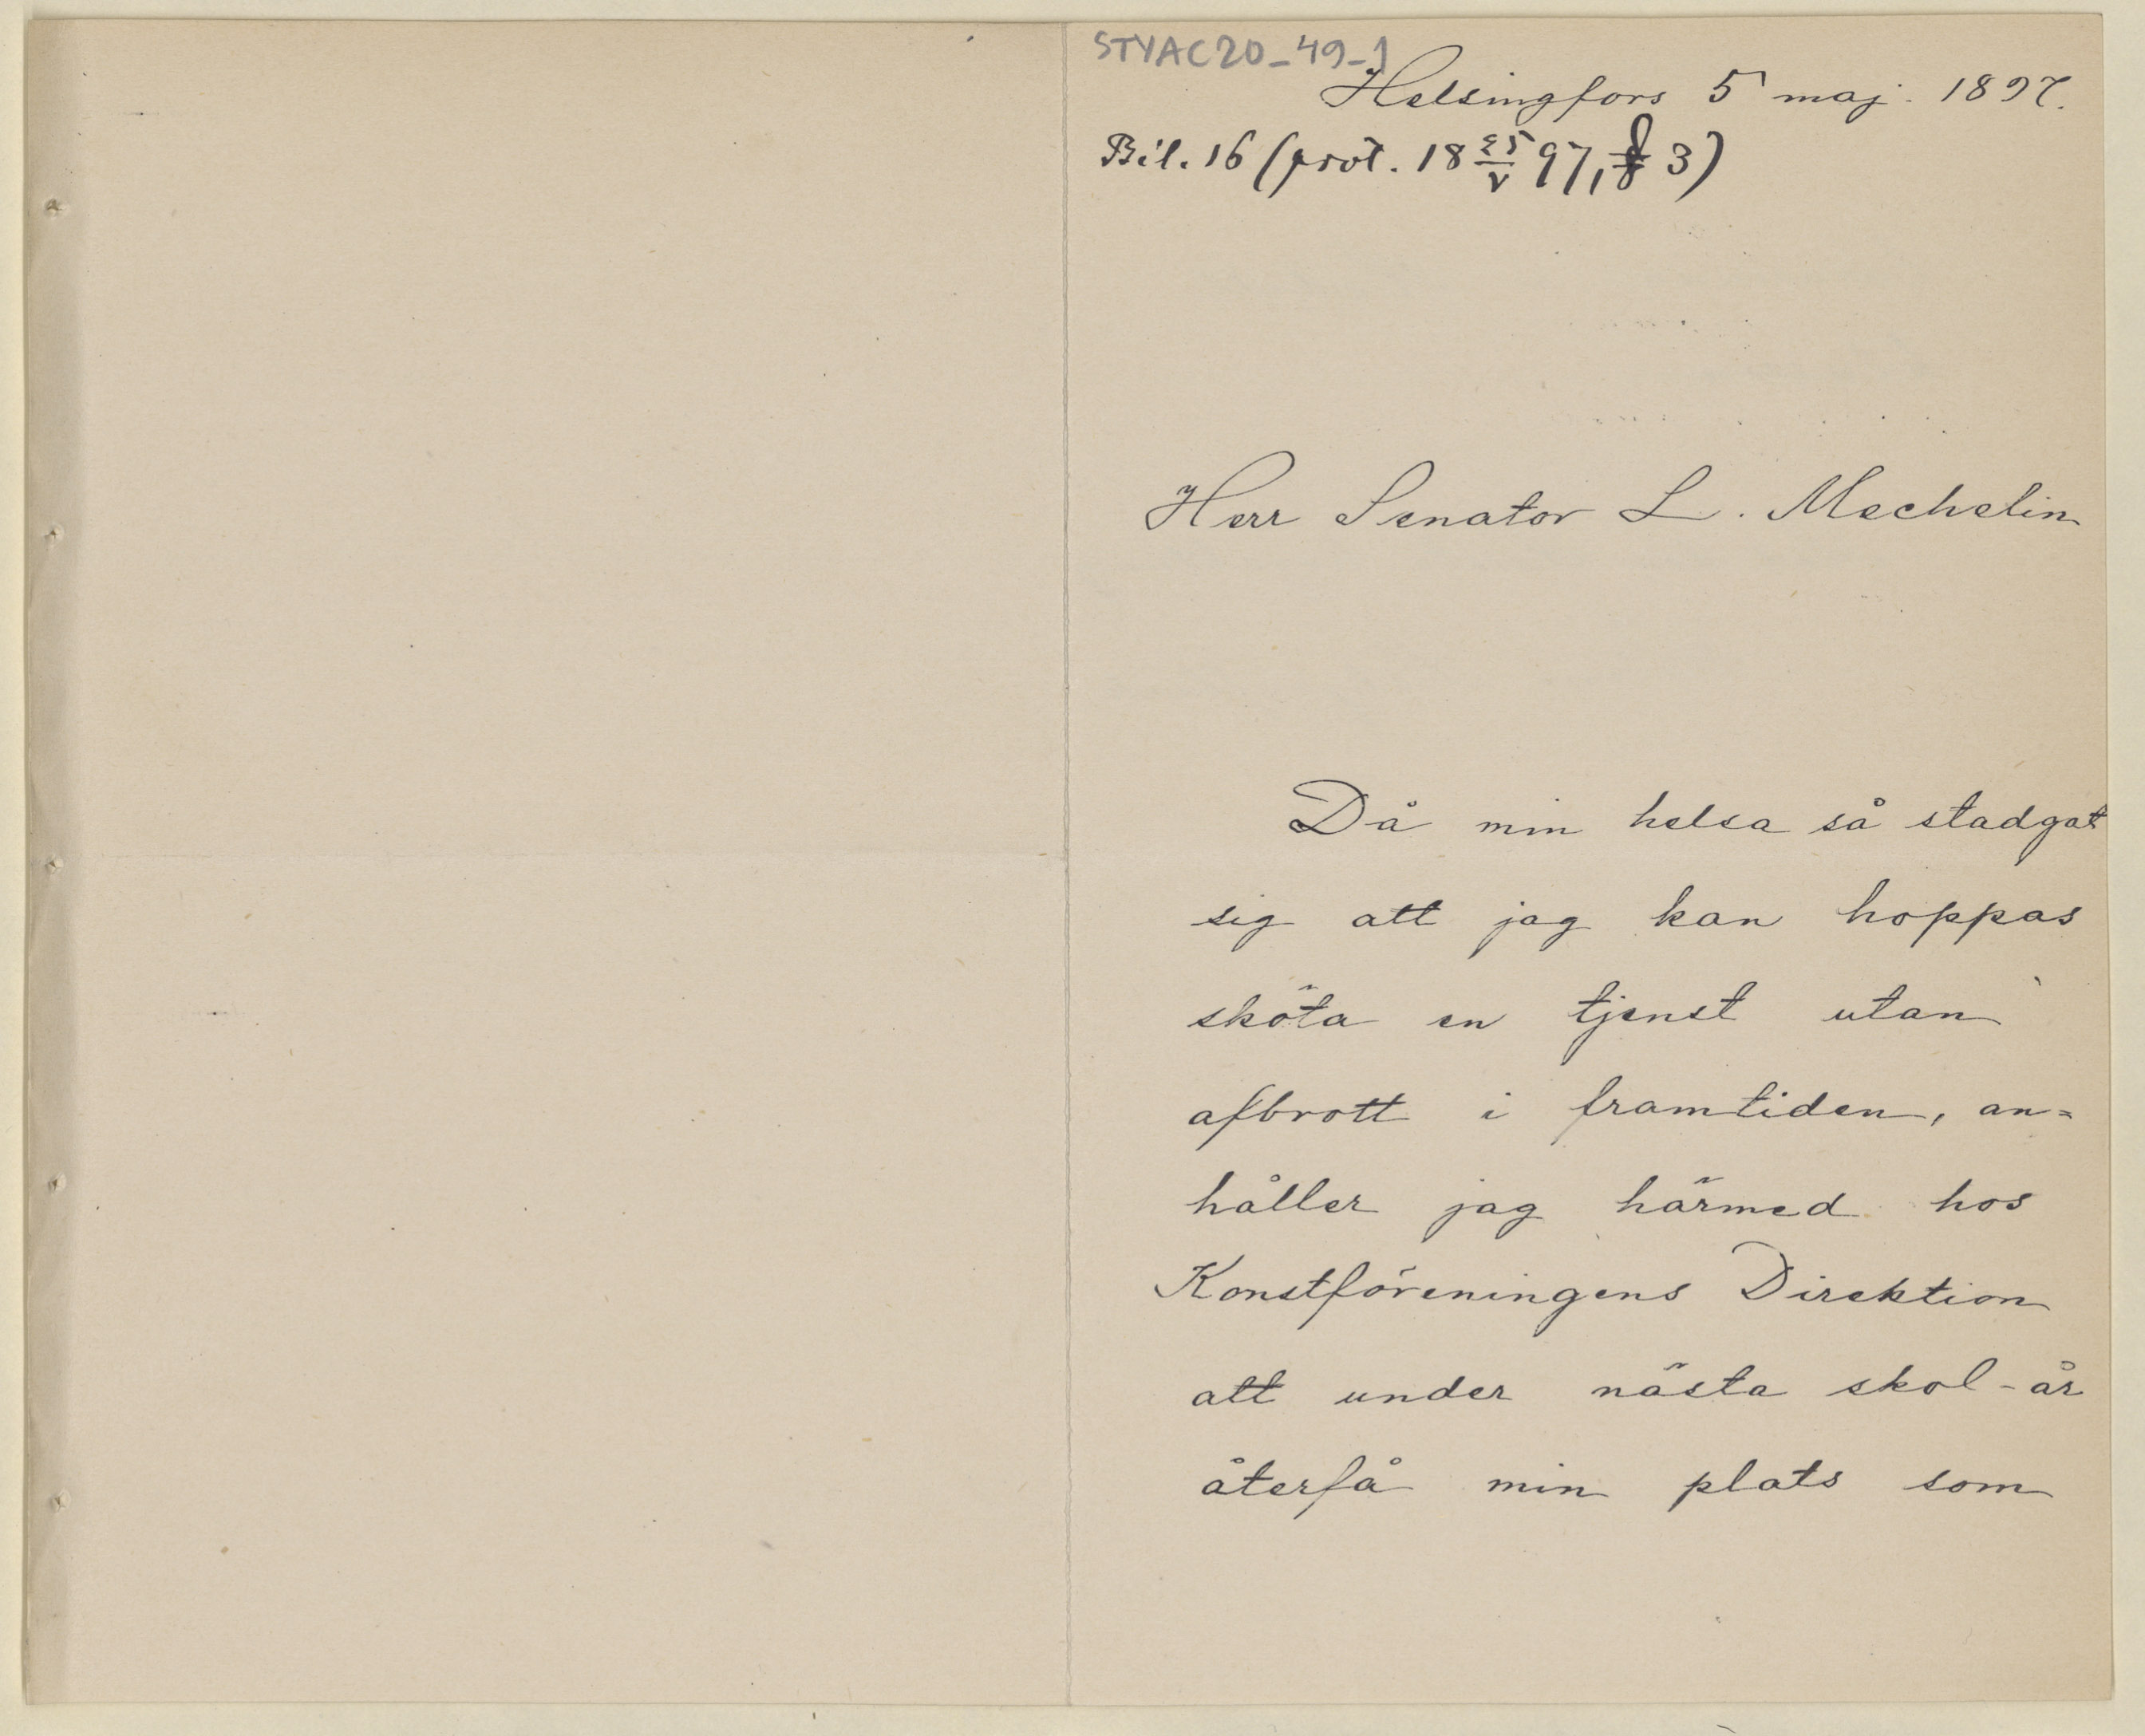 STYAC20_49_1
Helsingfors 5 maj. 1897.
Bil. 16 (prot. 18 25/V 97, § 3)
Herr Senator L. Mechelin
Då min helsa så stadgat
sig att jag kan hoppas
sköta en tjenst utan
afbrott i framtiden, an=
håller jag härmed hos
Konstföreningens Direktion
att under nästa skol-år
återfå min plats som